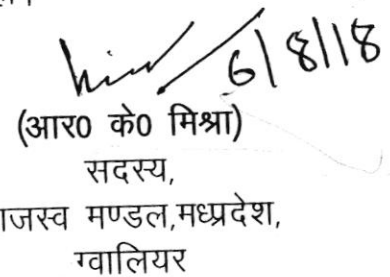 6/8/18
(आर0 के0 मिश्रा)
सदस्य,
मण्डल,मध्प्रदेश,
ग्वालियर